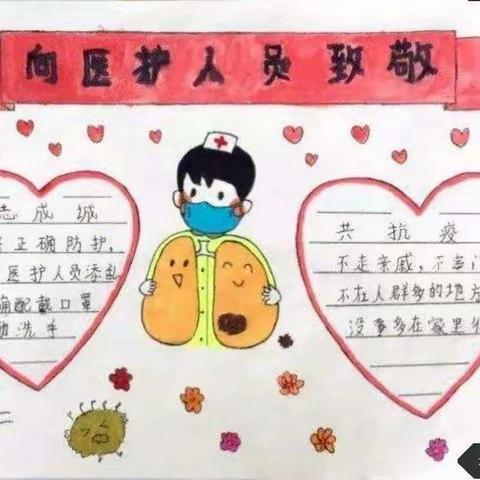 向医护人员致敬
志成城
正确防护,
医护人员添乱
确配戴口罩
洗手
共抗疫
不走亲戚,不
不在人群多的地方
没事多在家里